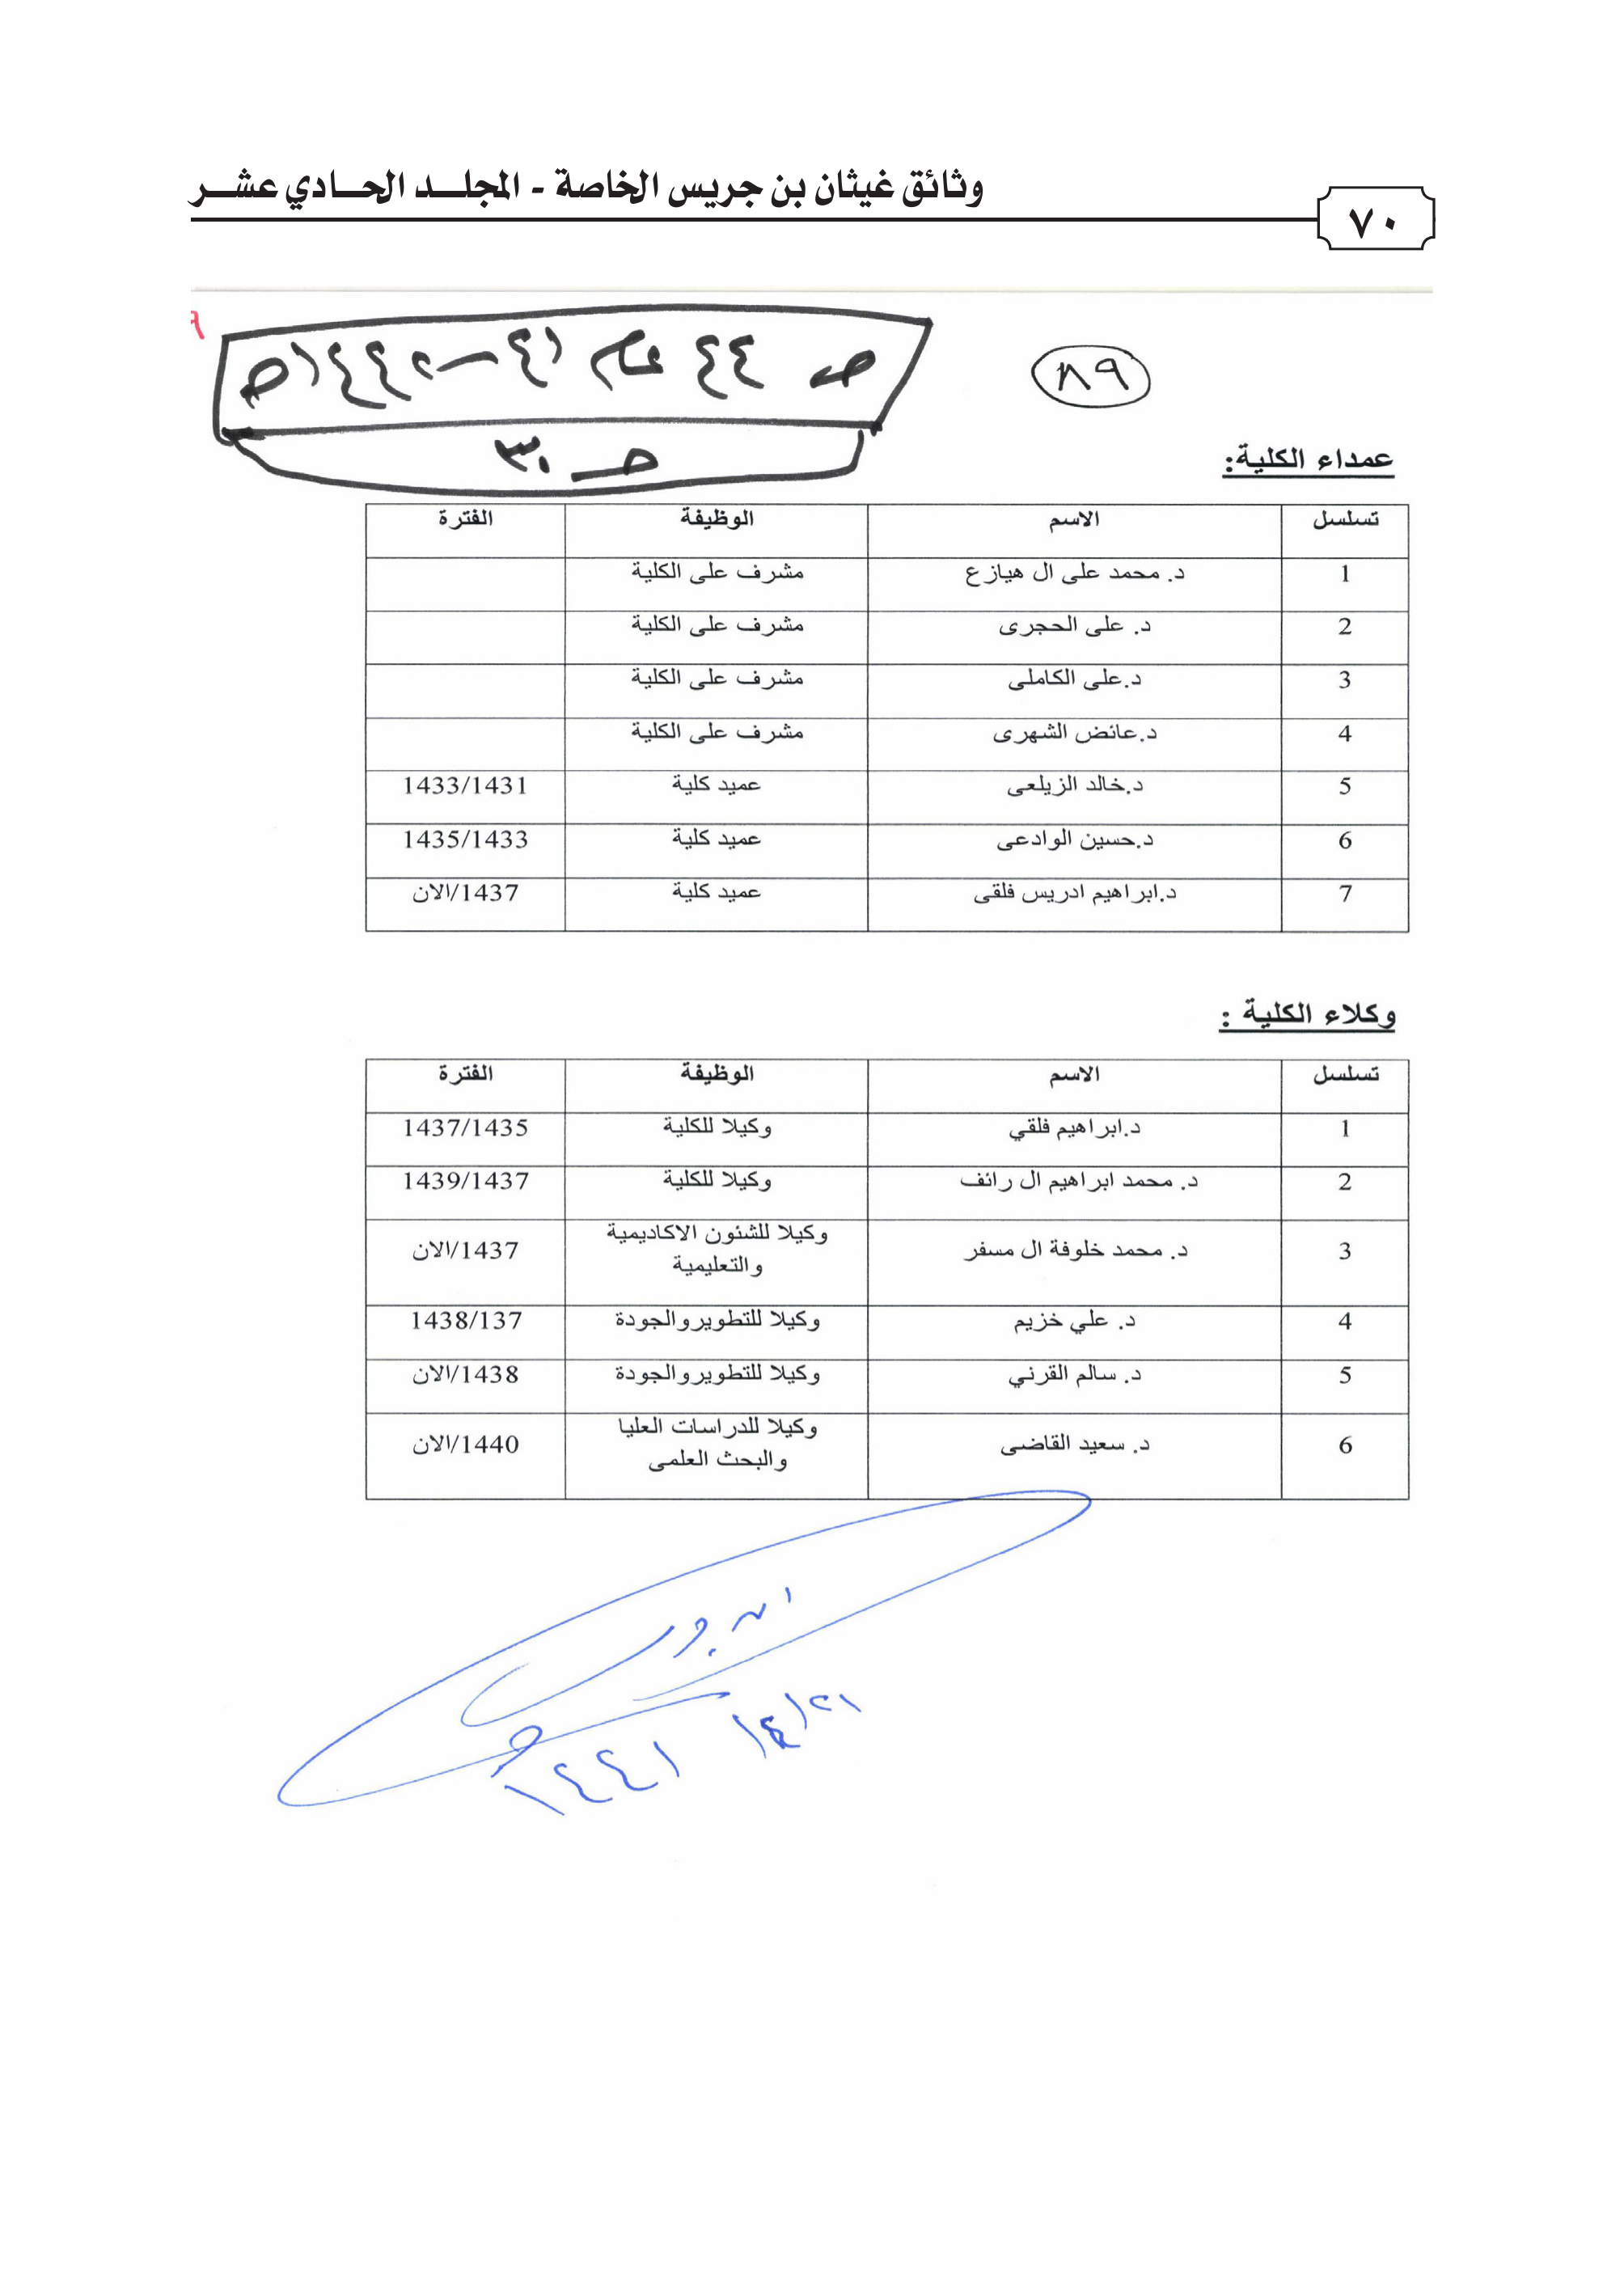 وثائق غيثان بن جريس الخاصة - المجلد الحادي عشر
٧٠
٨٩
ص ٤٤ عام ٤١ - ١٤٤٢هـ
حـ ٣٠
عمداء الكلية:
تسلسل الاسم الوظيفة الفترة
1 د. محمد على ال هيازع مشرف على الكلية
2 د. على الحجرى مشرف على الكلية
3 د.على الكاملى مشرف على الكلية
4 د.عائض الشهرى مشرف على الكلية
5 د.خالد الزيلعى عميد كلية 1433/1431
6 د.حسين الوادعى عميد كلية 1435/1433
7 د.ابراهيم ادريس فلقى عميد كلية 1437/الان
وكلاء الكلية :
تسلسل الاسم الوظيفة الفترة
1 د.ابراهيم فلقي وكيلا للكلية 1437/1435
2 د. محمد ابراهيم ال رائف وكيلا للكلية 1439/1437
3 د. محمد خلوفة ال مسفر وكيلا للشئون الاكاديمية والتعليمية 1437/الان
4 د. علي خزيم وكيلا للتطويروالجودة 1438/137
5 د. سالم القرني وكيلا للتطويروالجودة 1438/الان
6 د. سعيد القاضى وكيلا للدراسات العليا والبحث العلمى 1440/الان
١٤٤١هـ